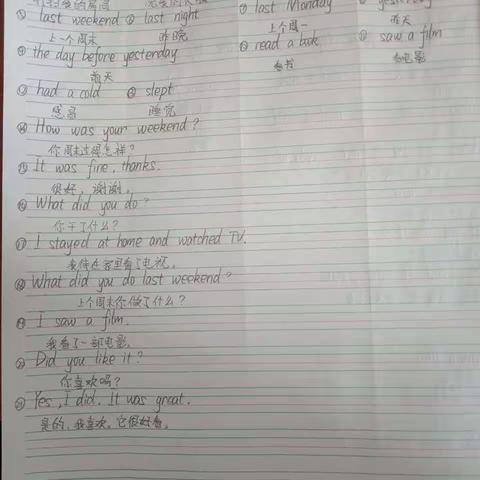 last weekend last night last Monday yesterday
上一个周末 昨晚 上个周一 昨天
the day before yesterday read a book saw a film
前天 看书 看电影
had a cold slept
感冒 睡觉
How was your weekend?
你周末过得怎样?
It was fine, thanks.
很好,谢谢。
What did you do?
你干了什么?
I stayed at home and watched TV.
我待在家里看了电视。
What did you do last weekend?
上个周末你做了什么?
I saw a film.
我看了一部电影。
Did you like it?
你喜欢吗?
Yes, I did. It was great.
是的,我喜欢。它很好看。